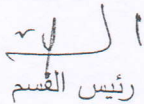 رئيس القسم